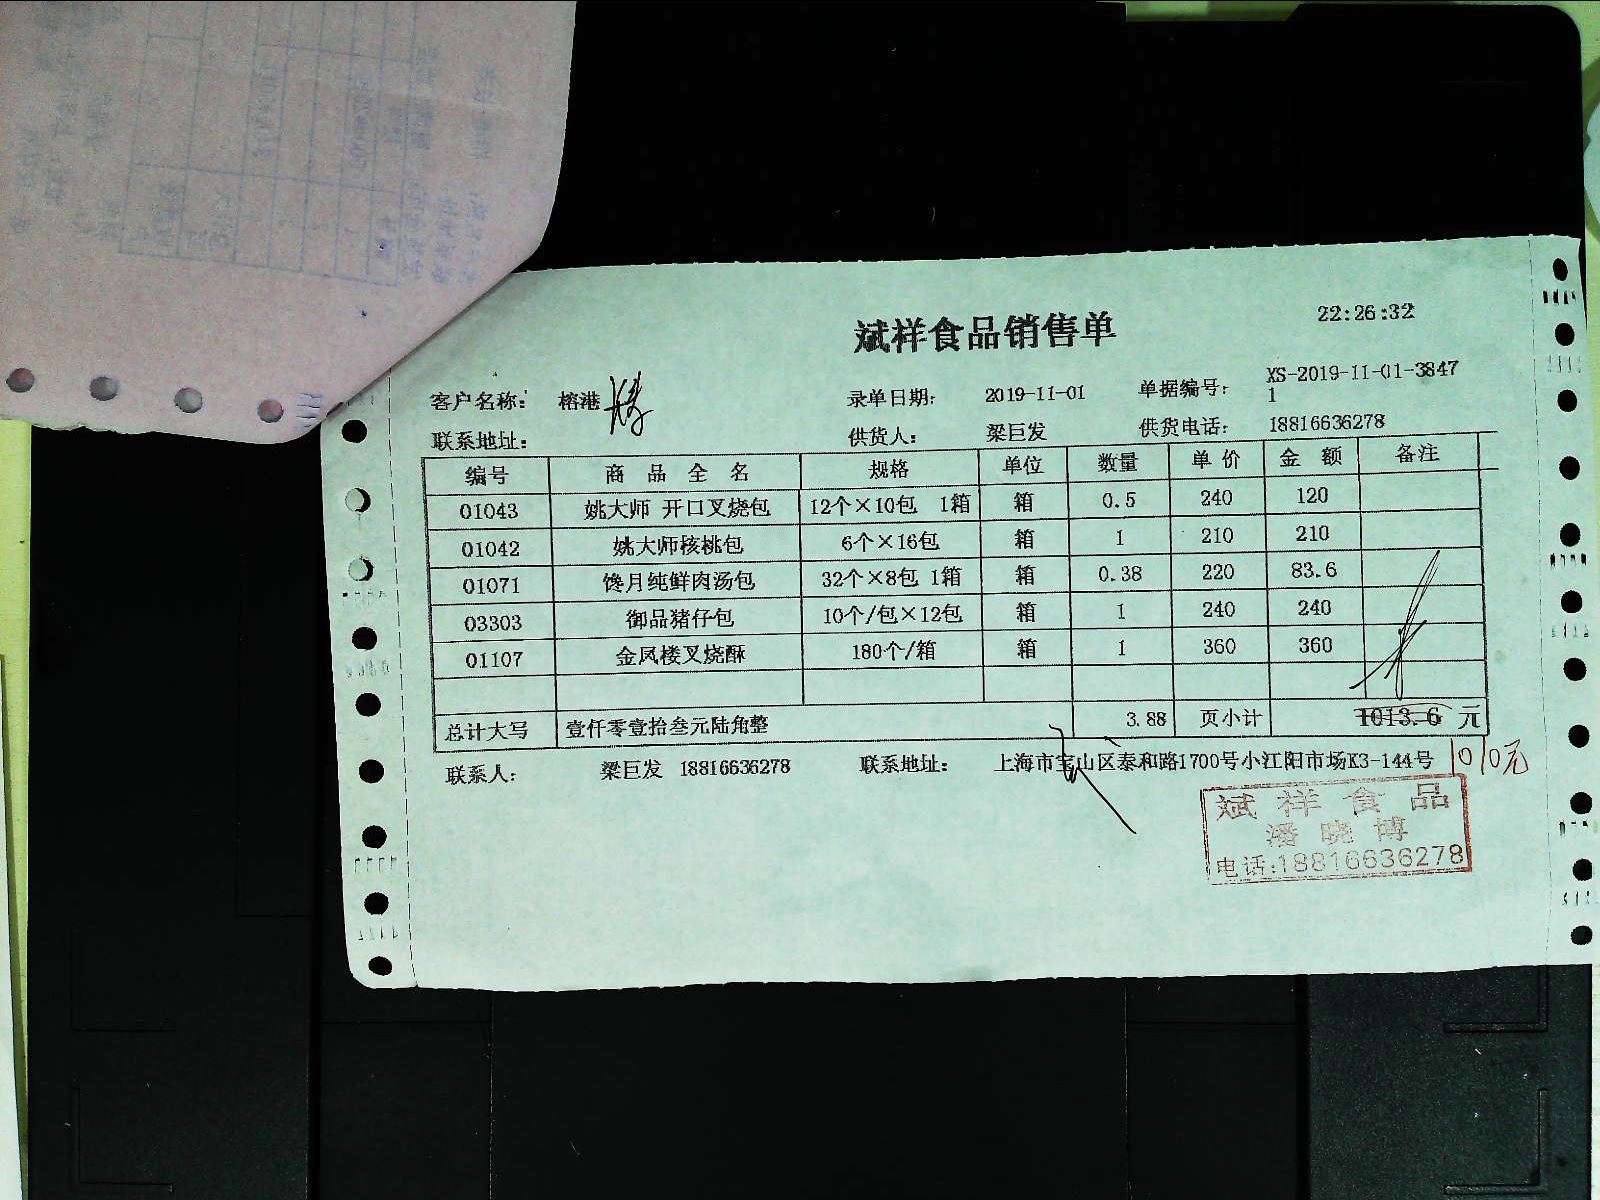 22:26:32
斌祥食品销售单
客户名称: 榕港 录单日期: 2019-11-01 单据编号: XS-2019-11-01-3847
1
联系地址: 供货人: 梁巨发 供货电话: 18816636278
编号 商品全名 规格 单位 数量 单价 金额 备注
01043 姚大师 开口叉烧包 12个×10包 1箱 箱 0.5 240 120
01042 姚大师核桃包 6个×16包 箱 1 210 210
01071 馋月纯鲜肉汤包 32个×8包 1箱 箱 0.38 220 83.6
03303 御品猪仔包 10个/包×12包 箱 1 240 240
01107 金凤楼叉烧酥 180个/箱 箱 1 360 360
总计大写 壹仟零壹拾叁元陆角整 3.88 页小计 1013.6 元
联系人: 梁巨发 18816636278 联系地址: 上海市宝山区泰和路1700号小江阳市场K3-144号 1010元
斌祥食品
潘晓博
电话:18816636278